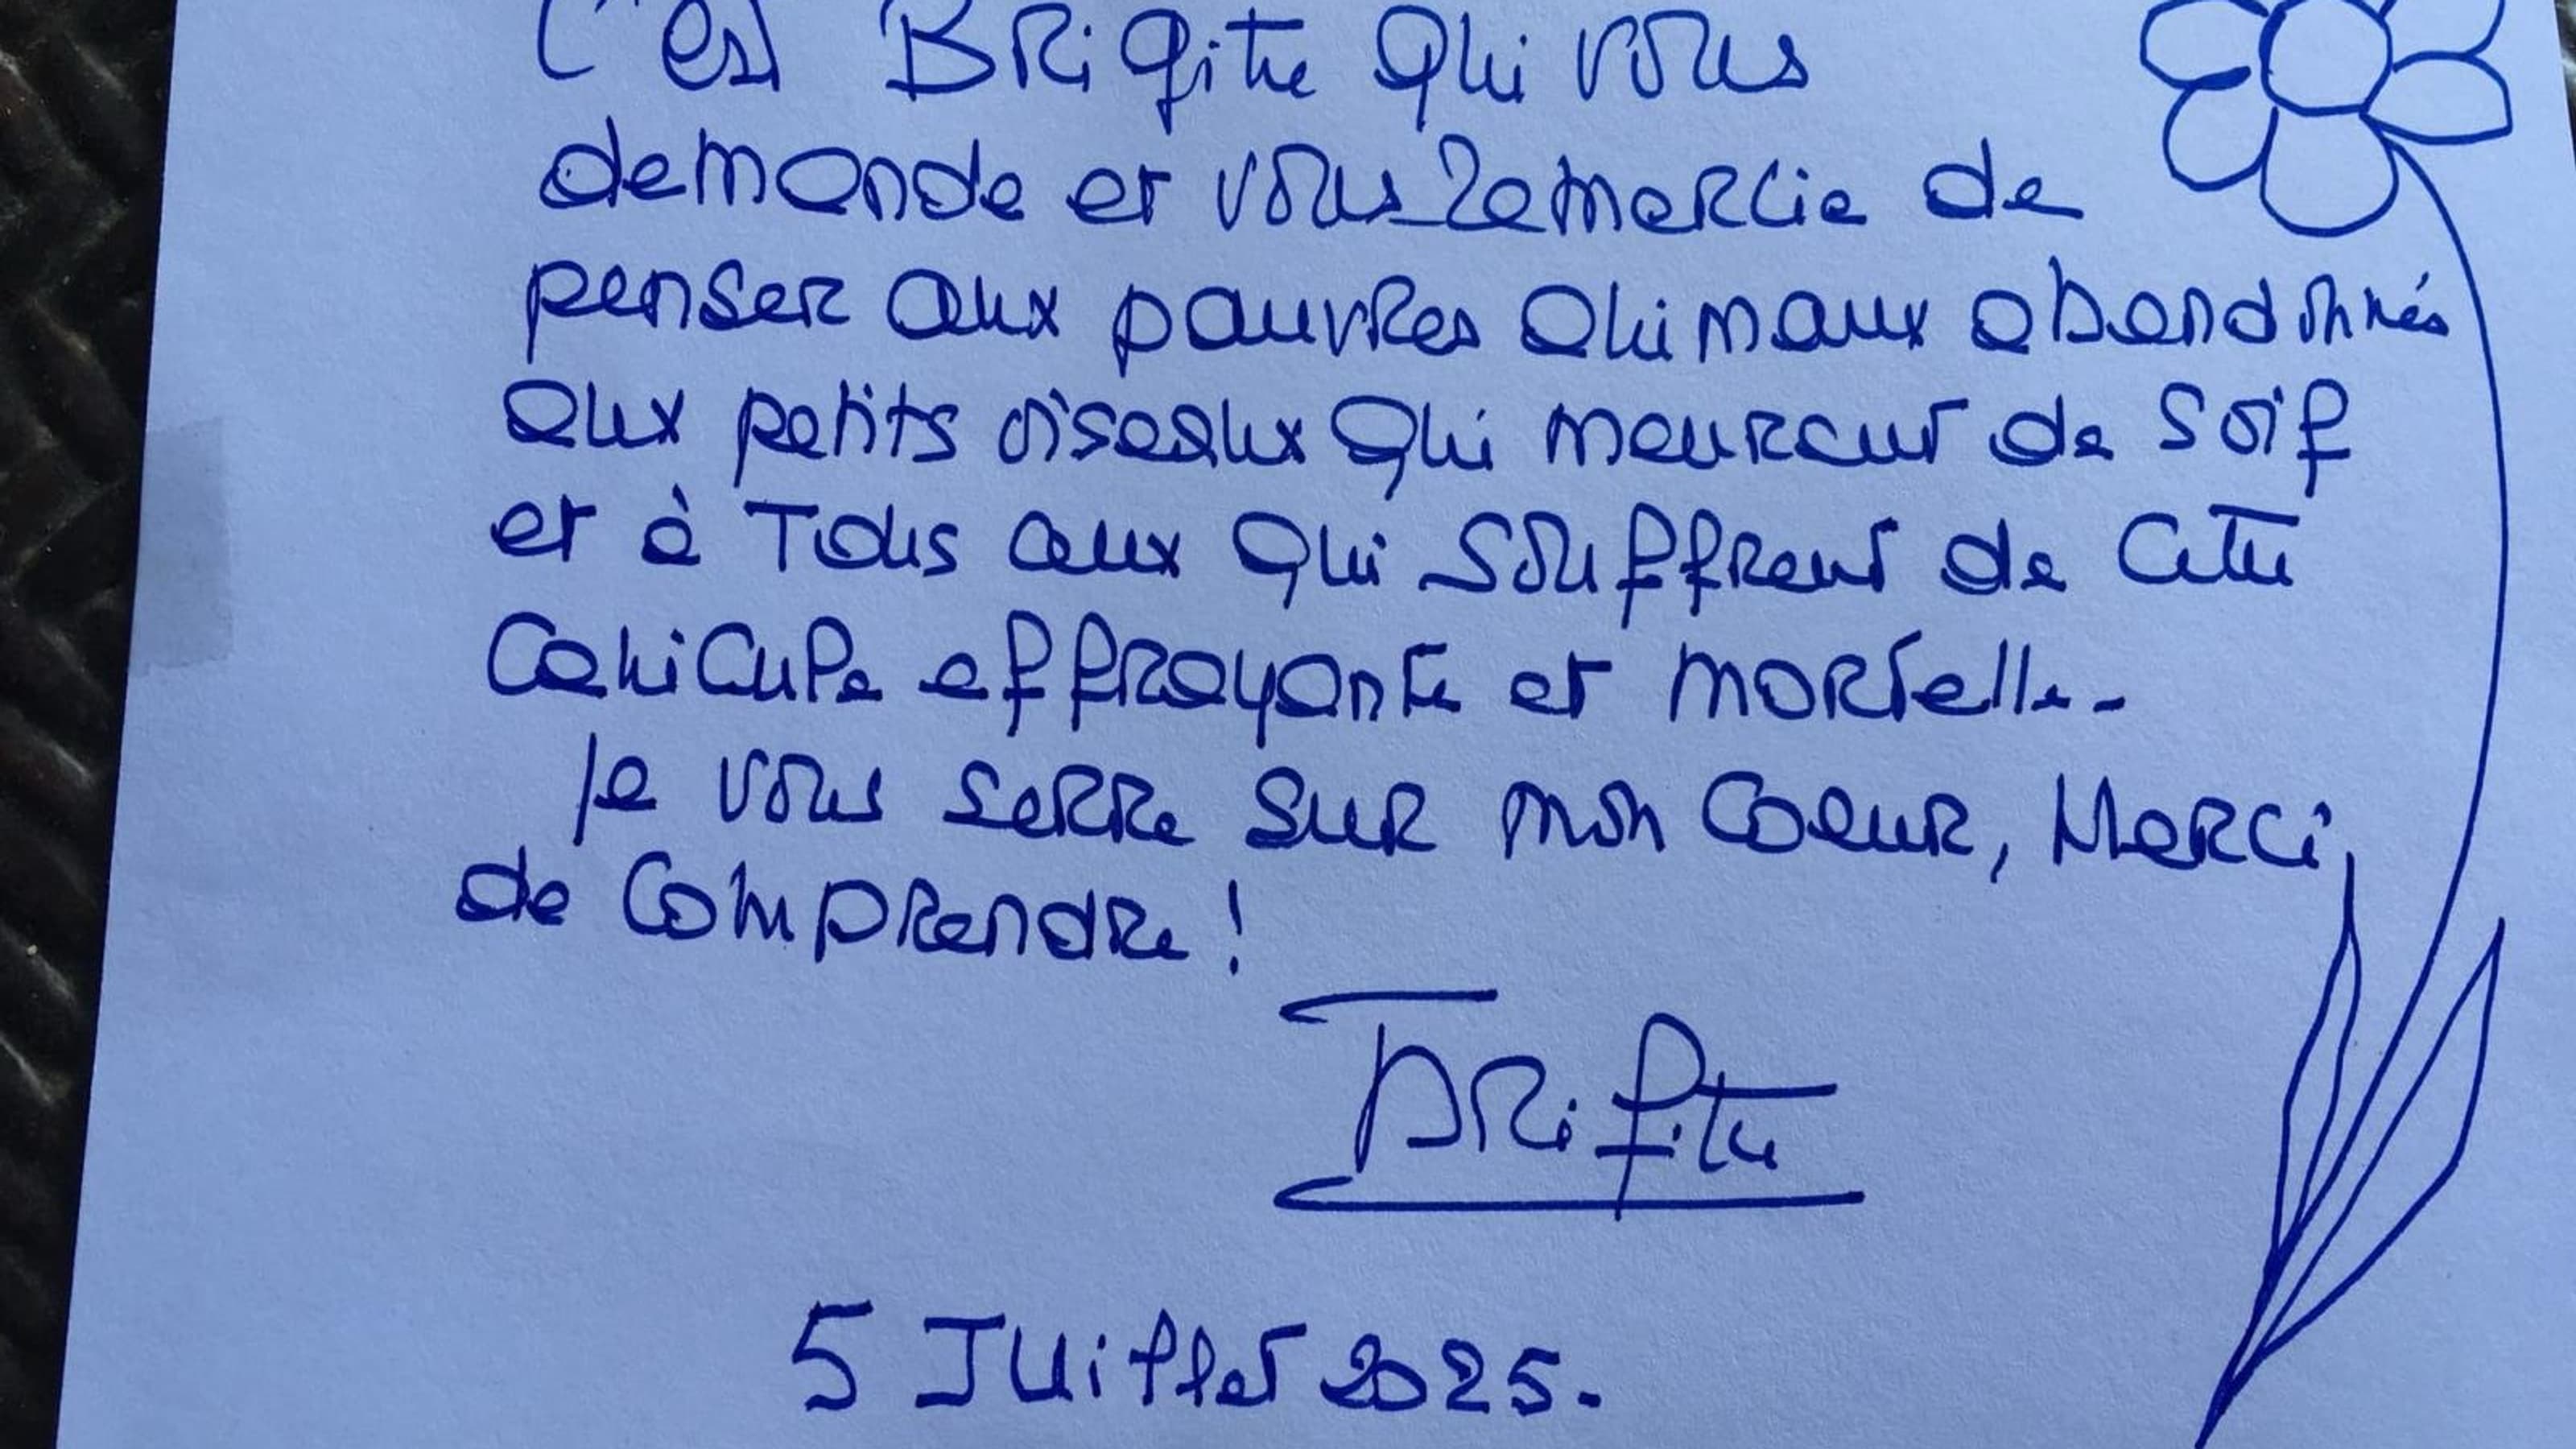 C'est Brigitte qui vous
demande et vous remercie de
penser aux pauvres animaux abandonnés
aux petits oiseaux qui meurent de soif
et à Tous ceux qui souffrent de cette
Canicule effrayante et mortelle -
Je vous serre sur mon Coeur, Merci,
de Comprendre !
Brigitte
5 Juillet 2025.